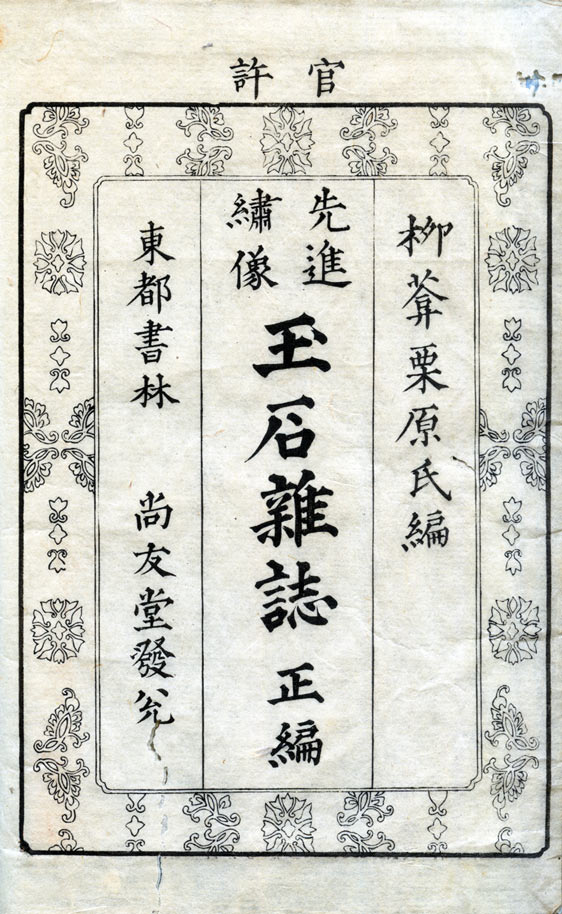 官許
柳葊栗原氏編
先進
繡像
玉石雜誌 正編
東都書林 尚友堂發兊